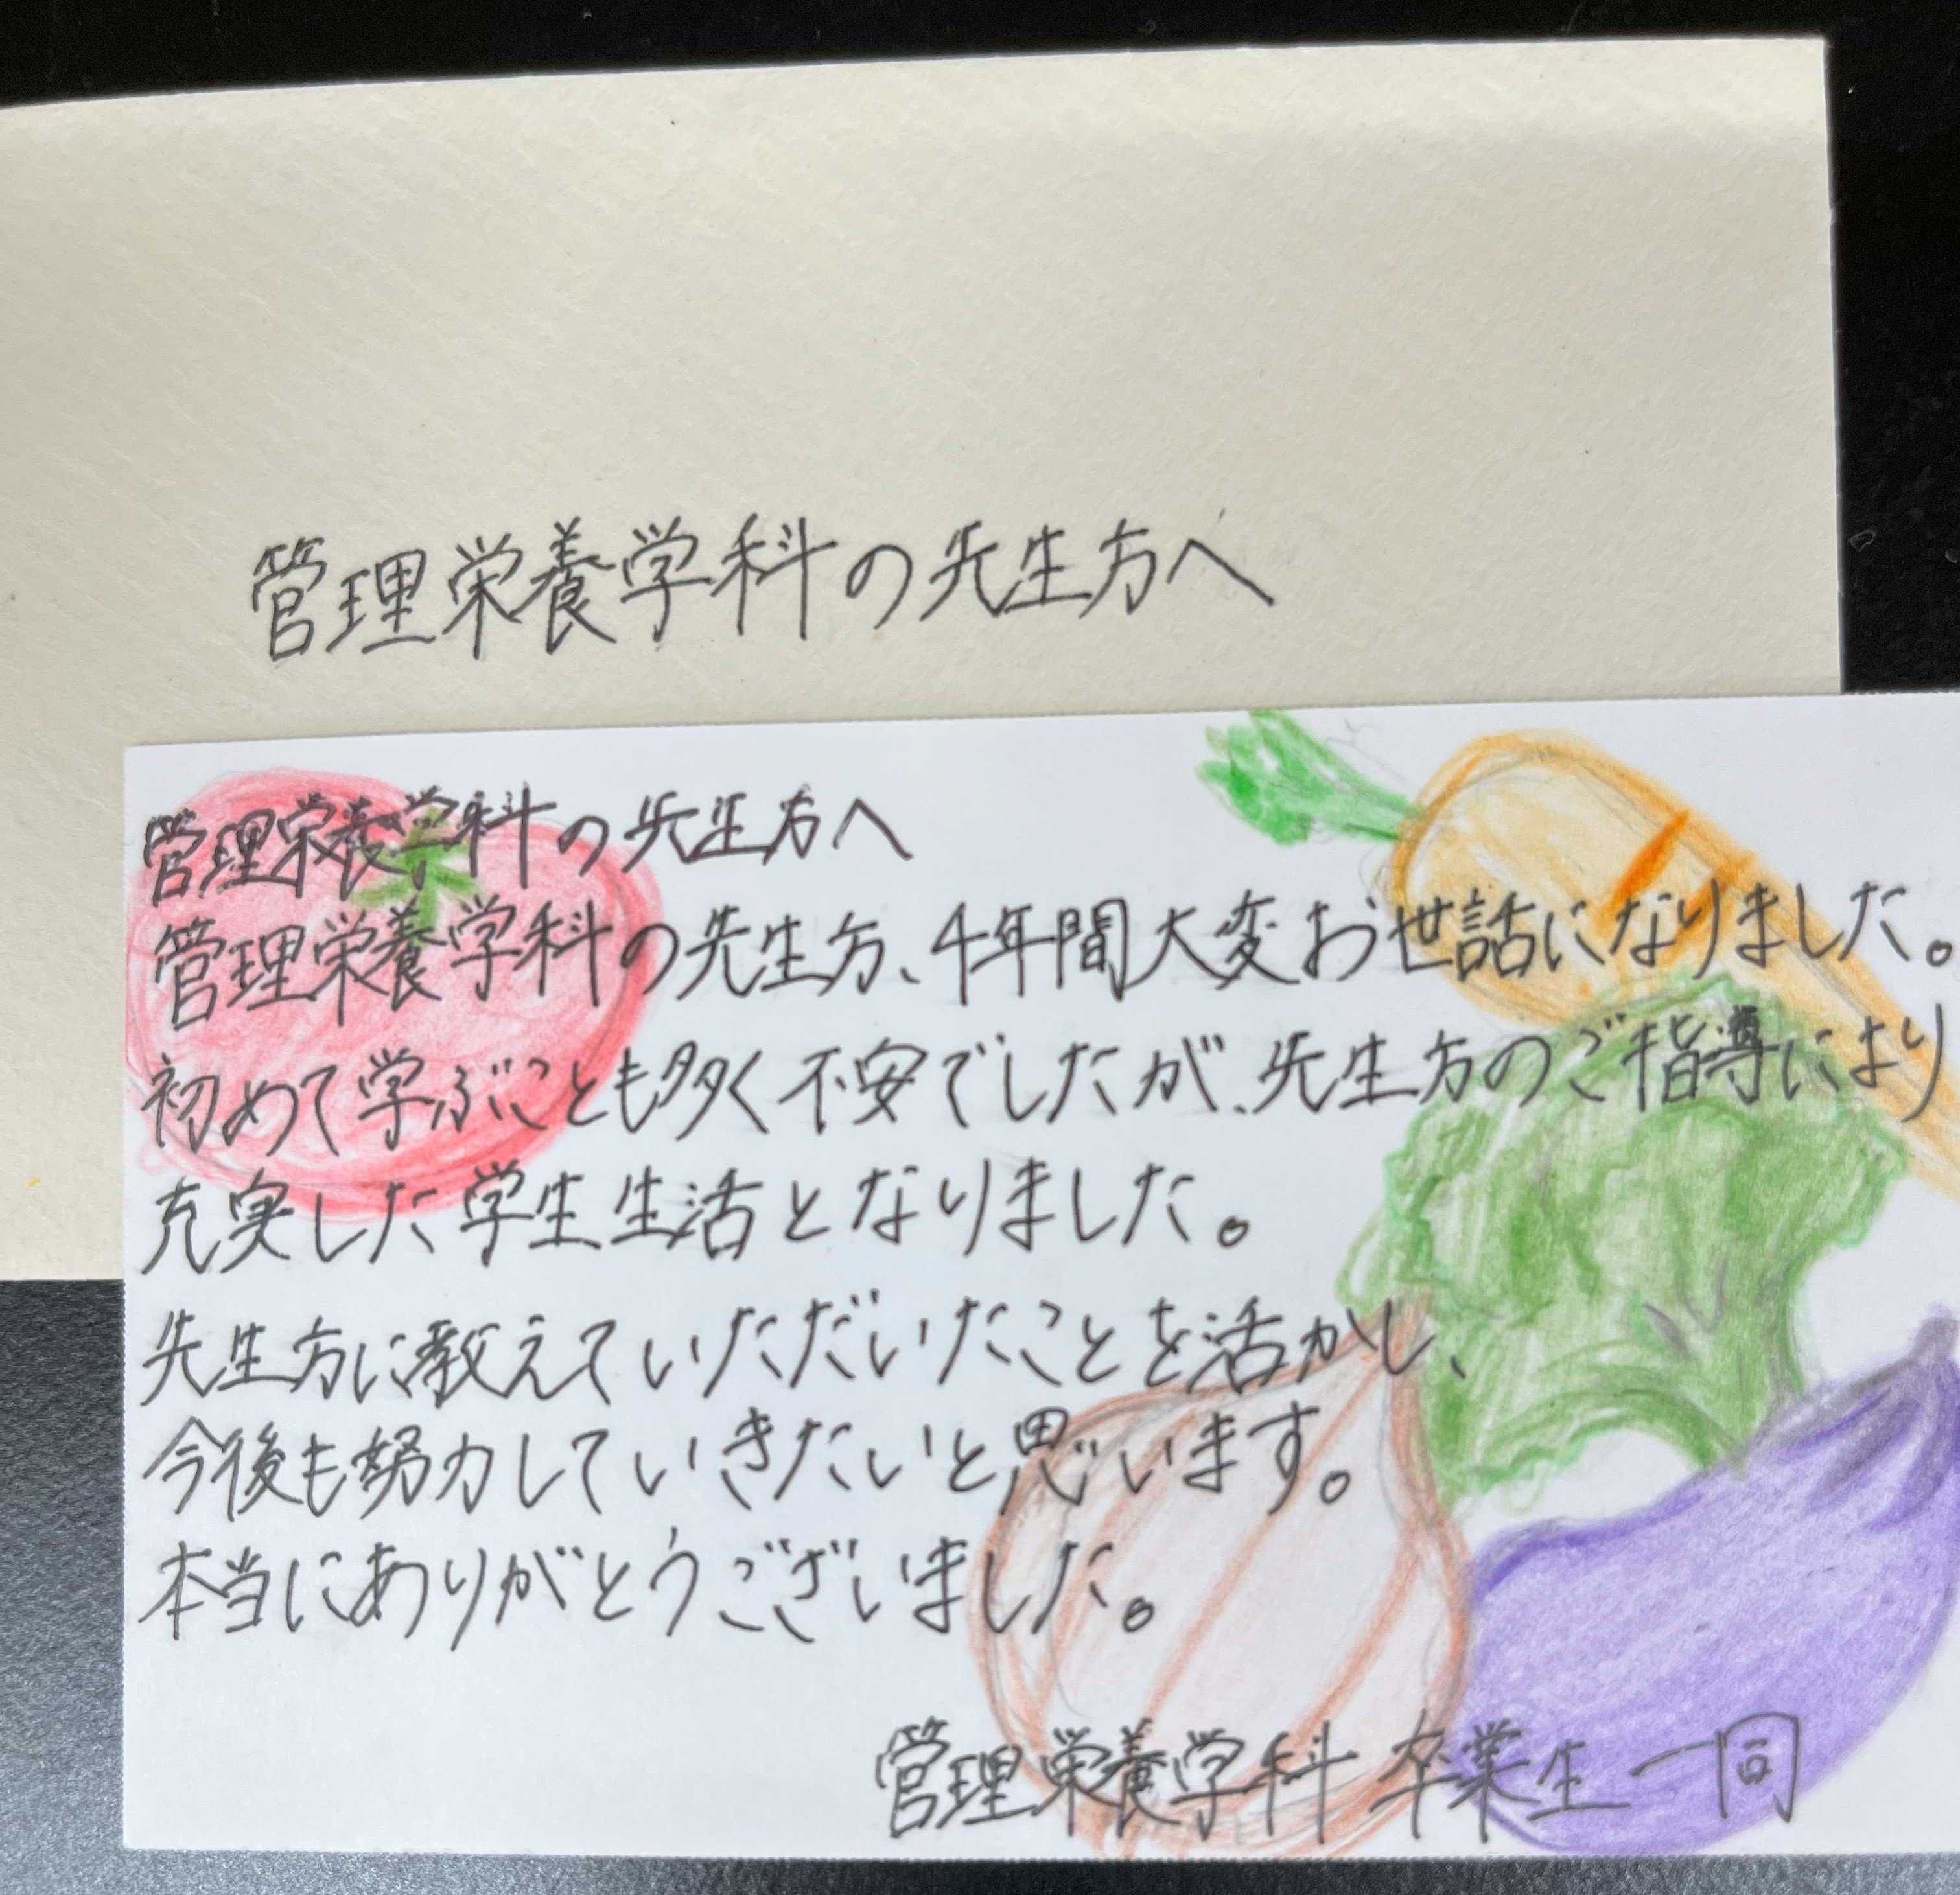 管理栄養学科の先生方へ
管理栄養学科の先生方へ
管理栄養学科の先生方、4年間大変お世話になりました。
初めて学ぶことも多く不安でしたが、先生方のご指導により
充実した学生生活となりました。
先生方に教えていただいたことを活かし、
今後も努力していきたいと思います。
本当にありがとうございました。
管理栄養学科 卒業生一同